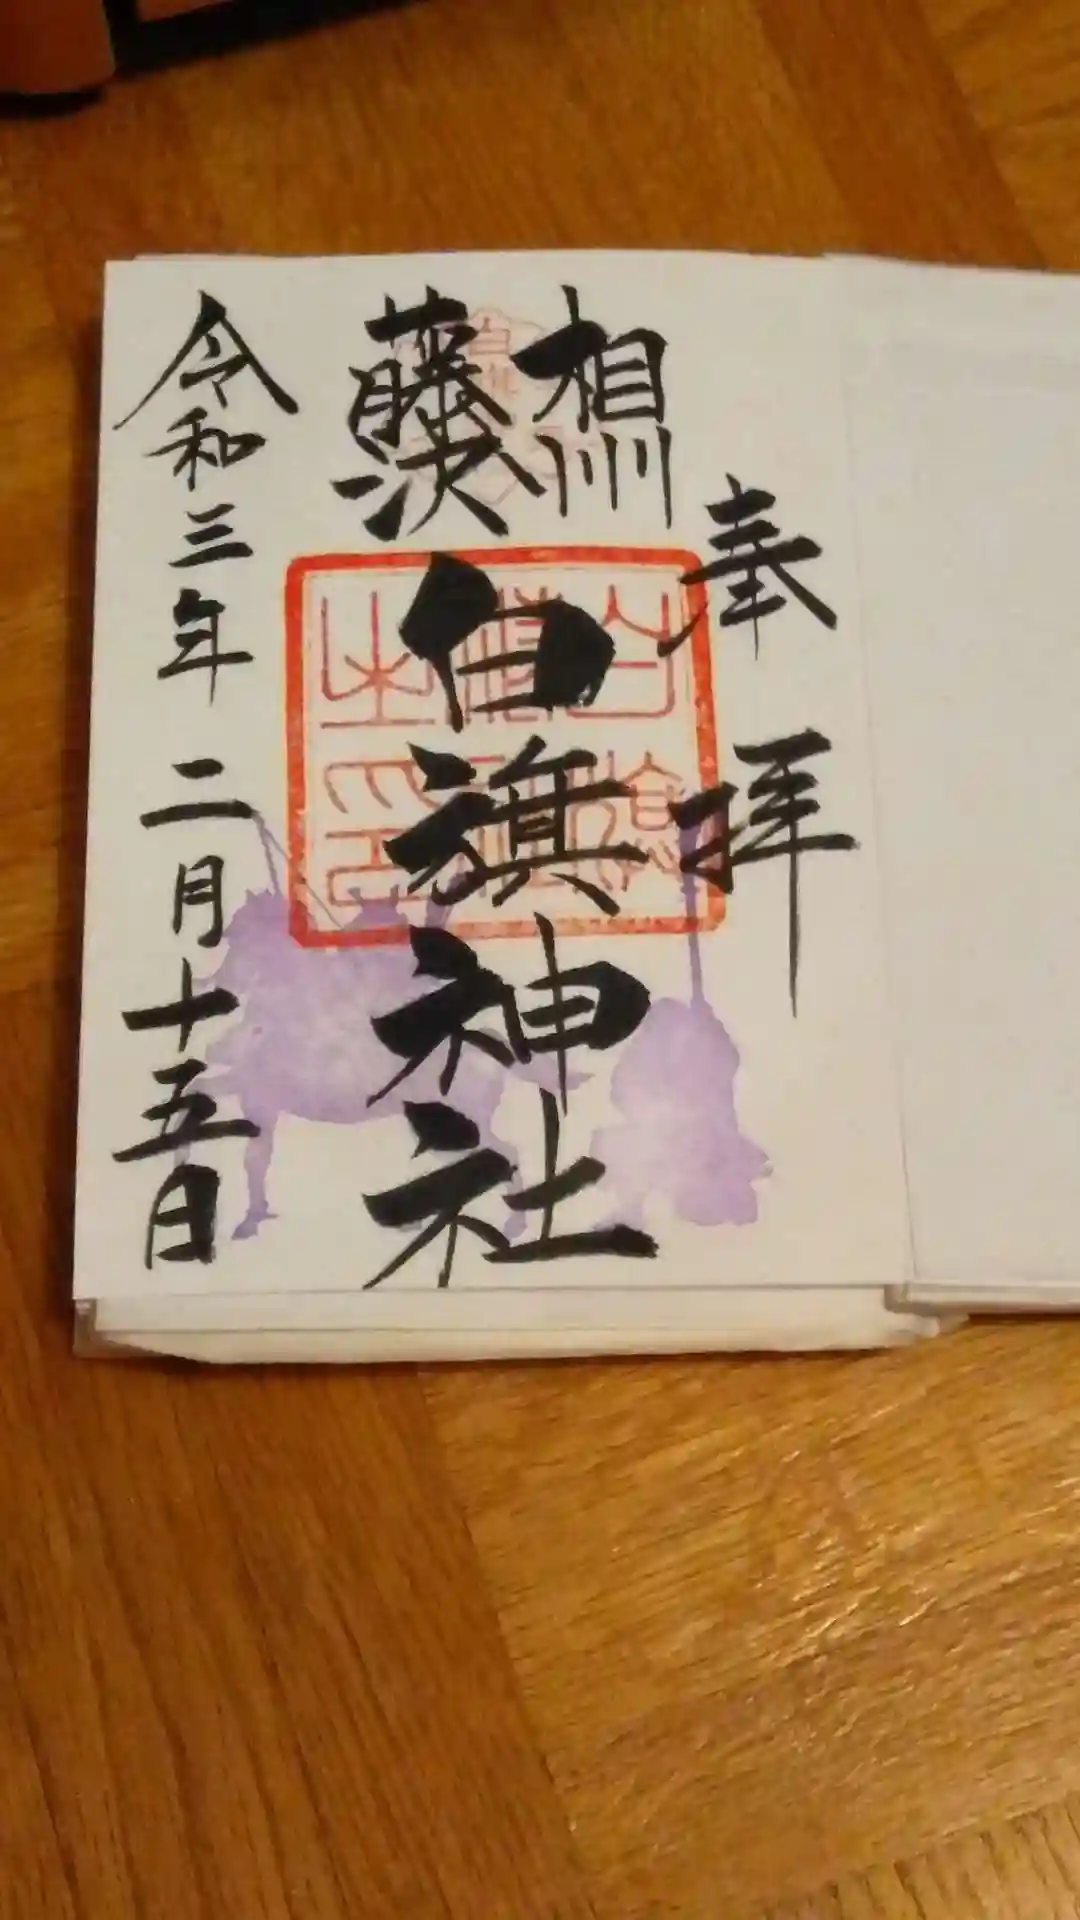 奉拝
相州
藤沢
白旗神社
令和三年二月十五日